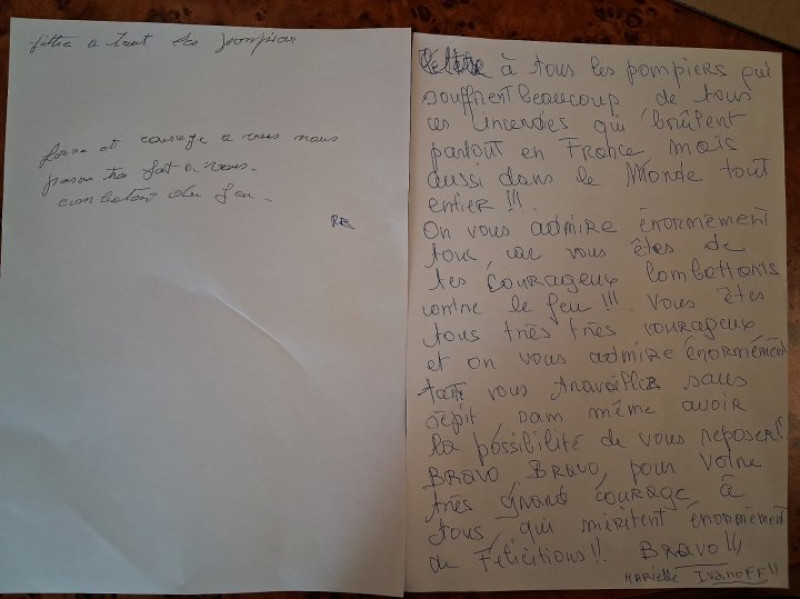 lettre a tout les pompier
force et courage a vous nous
pensons tres fort a vous.
combatant du feu.
RB
à tous les pompiers qui
souffrent beaucoup de tous
ces incendies qui brûlent
partout en France mais
aussi dans le Monde tout
entier !!!
On vous admire énormement
tous, car vous êtes de
tes courageux Combattants
contre le feu !!! Vous êtes
tous très très courageux
et on vous admire énormément
vous travailler sans
répit, sans même avoir
la possibilité de vous reposer!!
BRAVO, BRAVO, pour votre
très grand courage, à
tous, qui méritent énormement
de Félicitions!! BRAVO!!!
MARIELLE IVANOFF!!